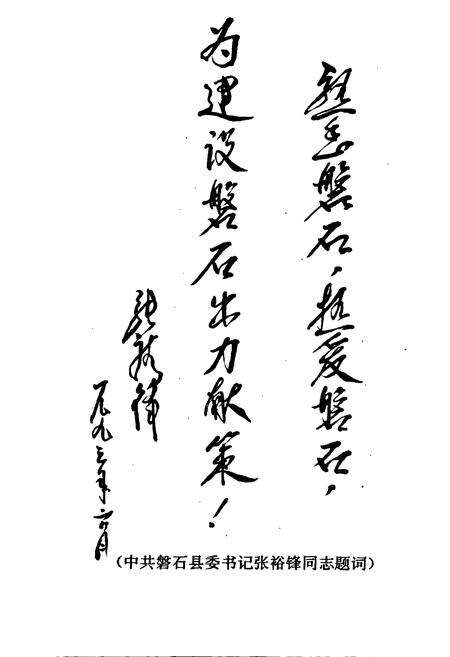 熟悉磐石,热爱磐石,
为建设磐石出力献策!
张裕锋
一九九三年六月
(中共磐石县委书记张裕锋同志题词)